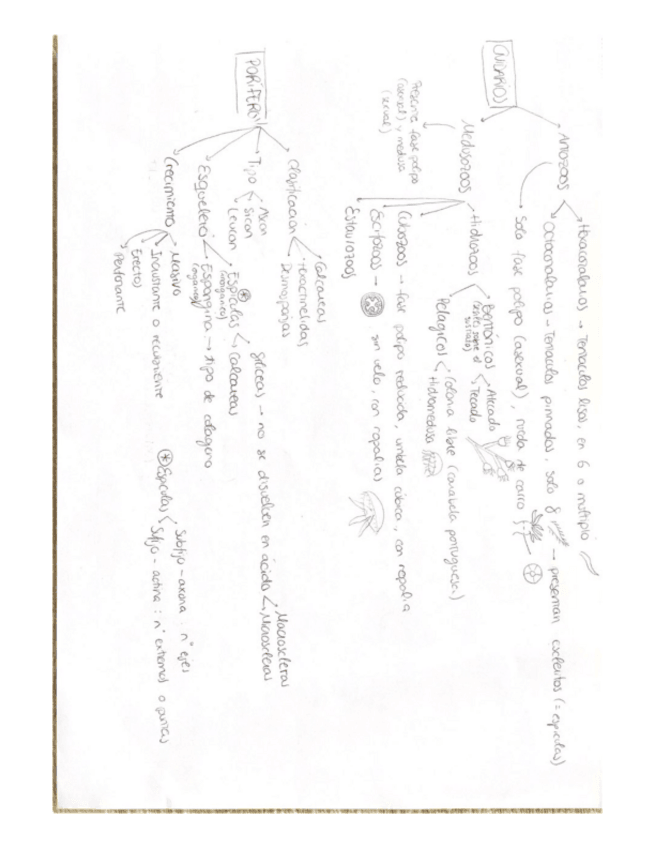 CNIDARIOS
Antozoos
Hexacoralarios → Tentáculos lisos, en 6 o múltiplo
Octocoralarios → Tentáculos pinnados, solo 8 → presentan escleritos (= espículas)
Solo fase pólipo (asexual), rueda de carro
Medusozoos
Presenta fase pólipo
(asexual) y medusa
(sexual)
Hidrozoos
Bentónicos
(viven sobre el
sustrato)
Atecado
Tecado
Pelágicos
Colonia libre (carabela portuguesa)
Hidromedusa
Cubozoos → fase pólipo reducida, umbela cúbica, con ropalia
Escifozoos → sin velo, con ropalios
Estaurozoos
PORÍFEROS
Clasificación
Calcáreas
Hexactinélidas
Desmosponjas
Tipo
Ascon
Sicon
Leucon
Esqueleto
Espículas
(inorgánico)
Silíceas → no se disuelven en ácido
Macroscleras
Microscleras
Calcáreas
Espongina → tipo de colágeno
(orgánico)
Crecimiento
Masivo
Incrustante o recubriente
Erecto
Perforante
* Espículas
Subfijo - axona : nº ejes
Sufijo - actina : nº extremos o puntas